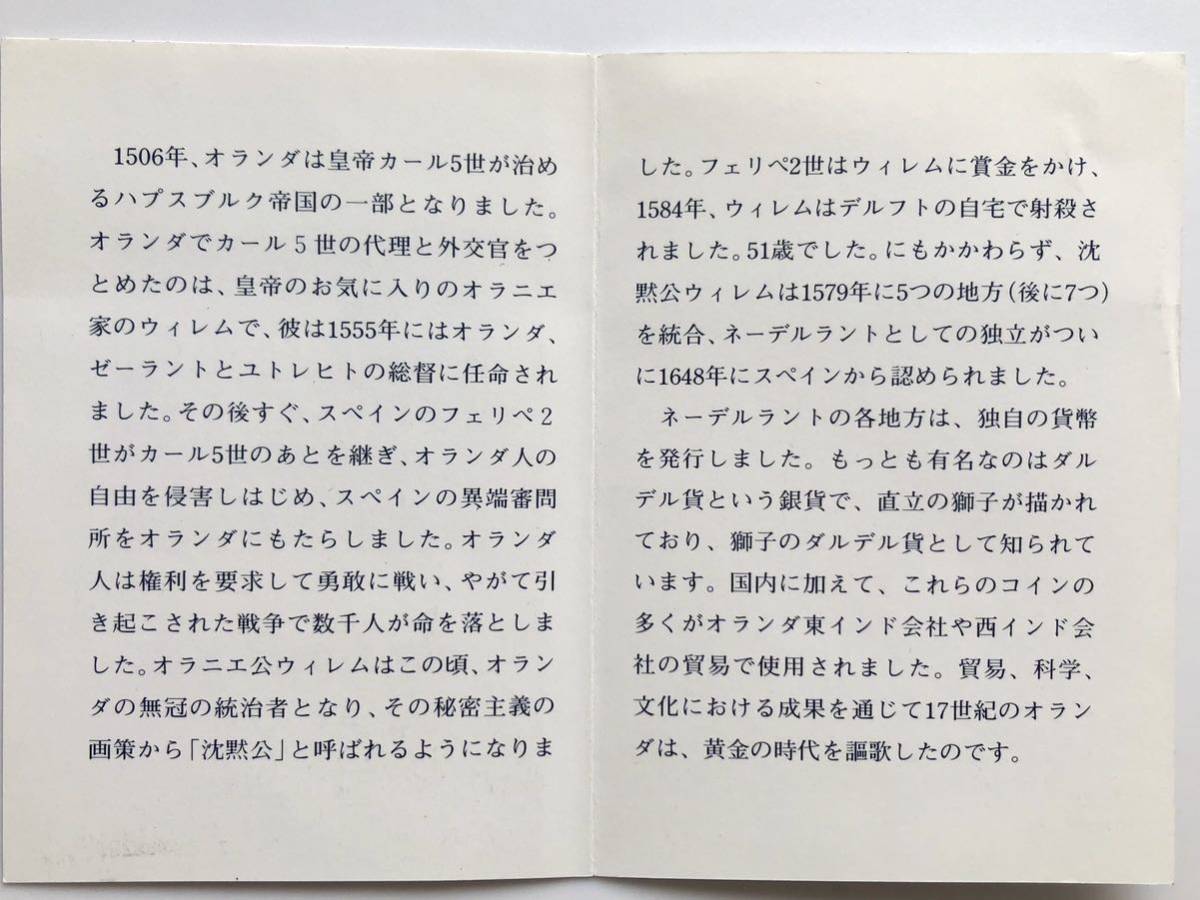 1506年、オランダは皇帝カール5世が治め
るハプスブルク帝国の一部となりました。
オランダでカール5世の代理と外交官をつ
とめたのは、皇帝のお気に入りのオラニエ
家のウィレムで、彼は1555年にはオランダ、
ゼーラントとユトレヒトの総督に任命され
ました。その後すぐ、スペインのフェリペ2
世がカール5世のあとを継ぎ、オランダ人の
自由を侵害しはじめ、スペインの異端審問
所をオランダにもたらしました。オランダ
人は権利を要求して勇敢に戦い、やがて引
き起こされた戦争で数千人が命を落としま
した。オラニエ公ウィレムはこの頃、オラン
ダの無冠の統治者となり、その秘密主義の
画策から「沈黙公」と呼ばれるようになりま
した。フェリペ2世はウィレムに賞金をかけ、
1584年、ウィレムはデルフトの自宅で射殺さ
れました。51歳でした。にもかかわらず、沈
黙公ウィレムは1579年に5つの地方(後に7つ)
を統合、ネーデルラントとしての独立がつい
に1648年にスペインから認められました。
ネーデルラントの各地方は、独自の貨幣
を発行しました。もっとも有名なのはダル
デル貨という銀貨で、直立の獅子が描かれ
ており、獅子のダルデル貨として知られて
います。国内に加えて、これらのコインの
多くがオランダ東インド会社や西インド会
社の貿易で使用されました。貿易、科学、
文化における成果を通じて17世紀のオラン
ダは、黄金の時代を謳歌したのです。